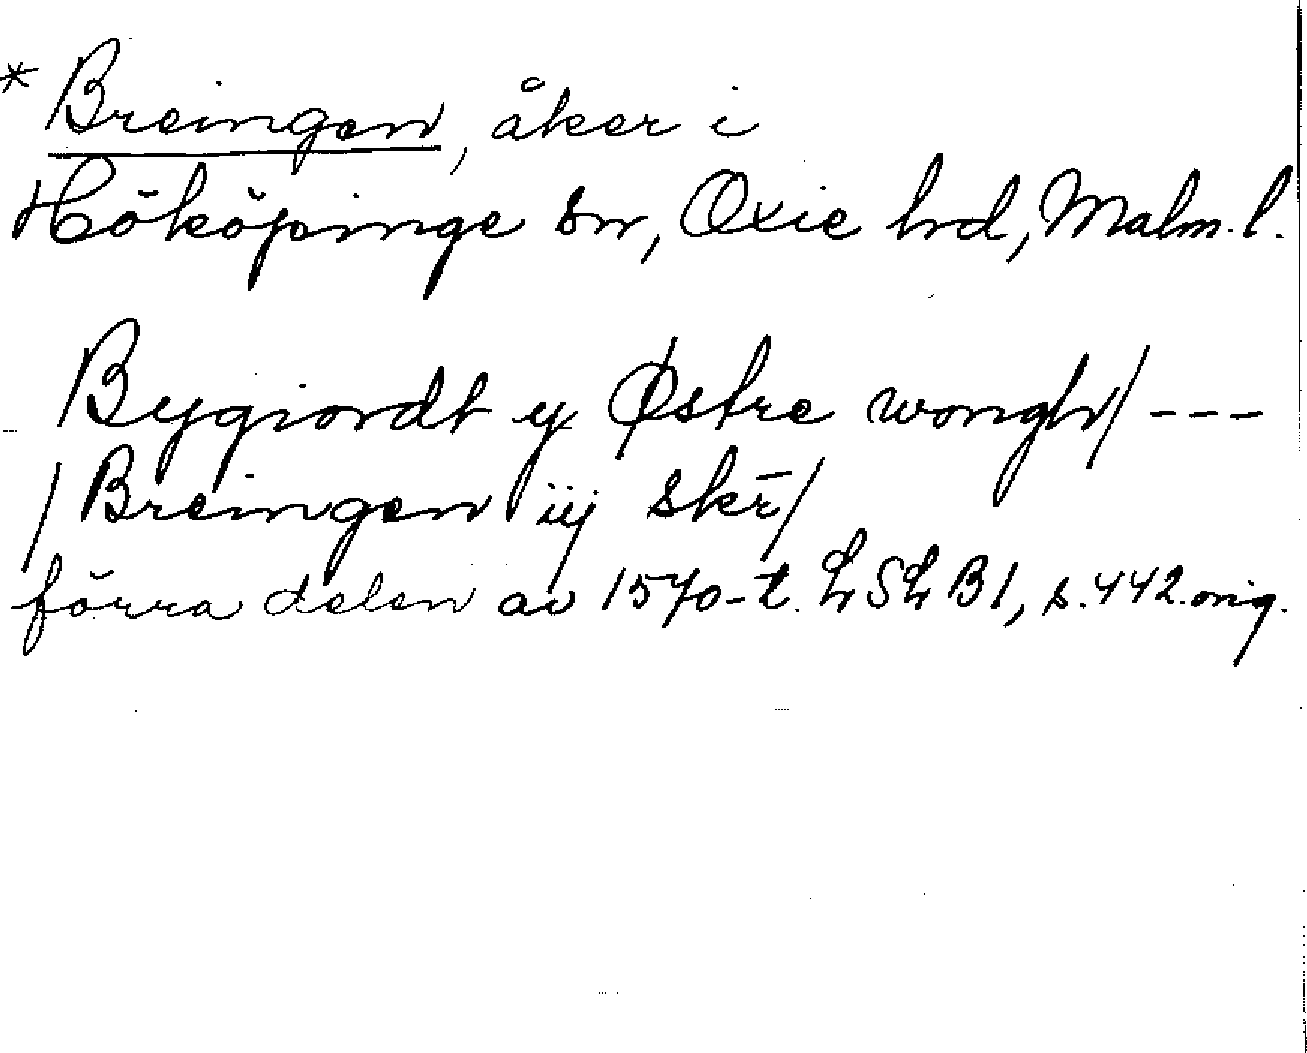 * Breingen, åker i
Hököpinge sn, Oxie hd, Malm. l.
Bygiordt y Østre wongh/ ---
/Breingen iij skr̄/
förra delen av 1570-t. LSL B1, s. 442. orig.